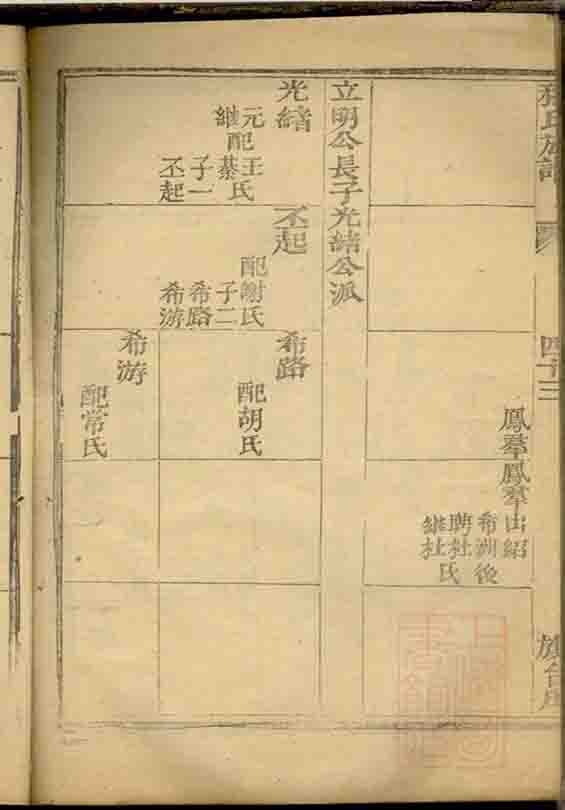 氏族譜
四十三
鳳羣鳳羣
出紹
希洲後
聘杜氏
繼杜
立明公長子光緒公派
光緒
元配王氏
繼配綦氏
子一
丕起
丕起
配謝氏
子二
希路
希游
希路
配胡氏
希游
配常氏